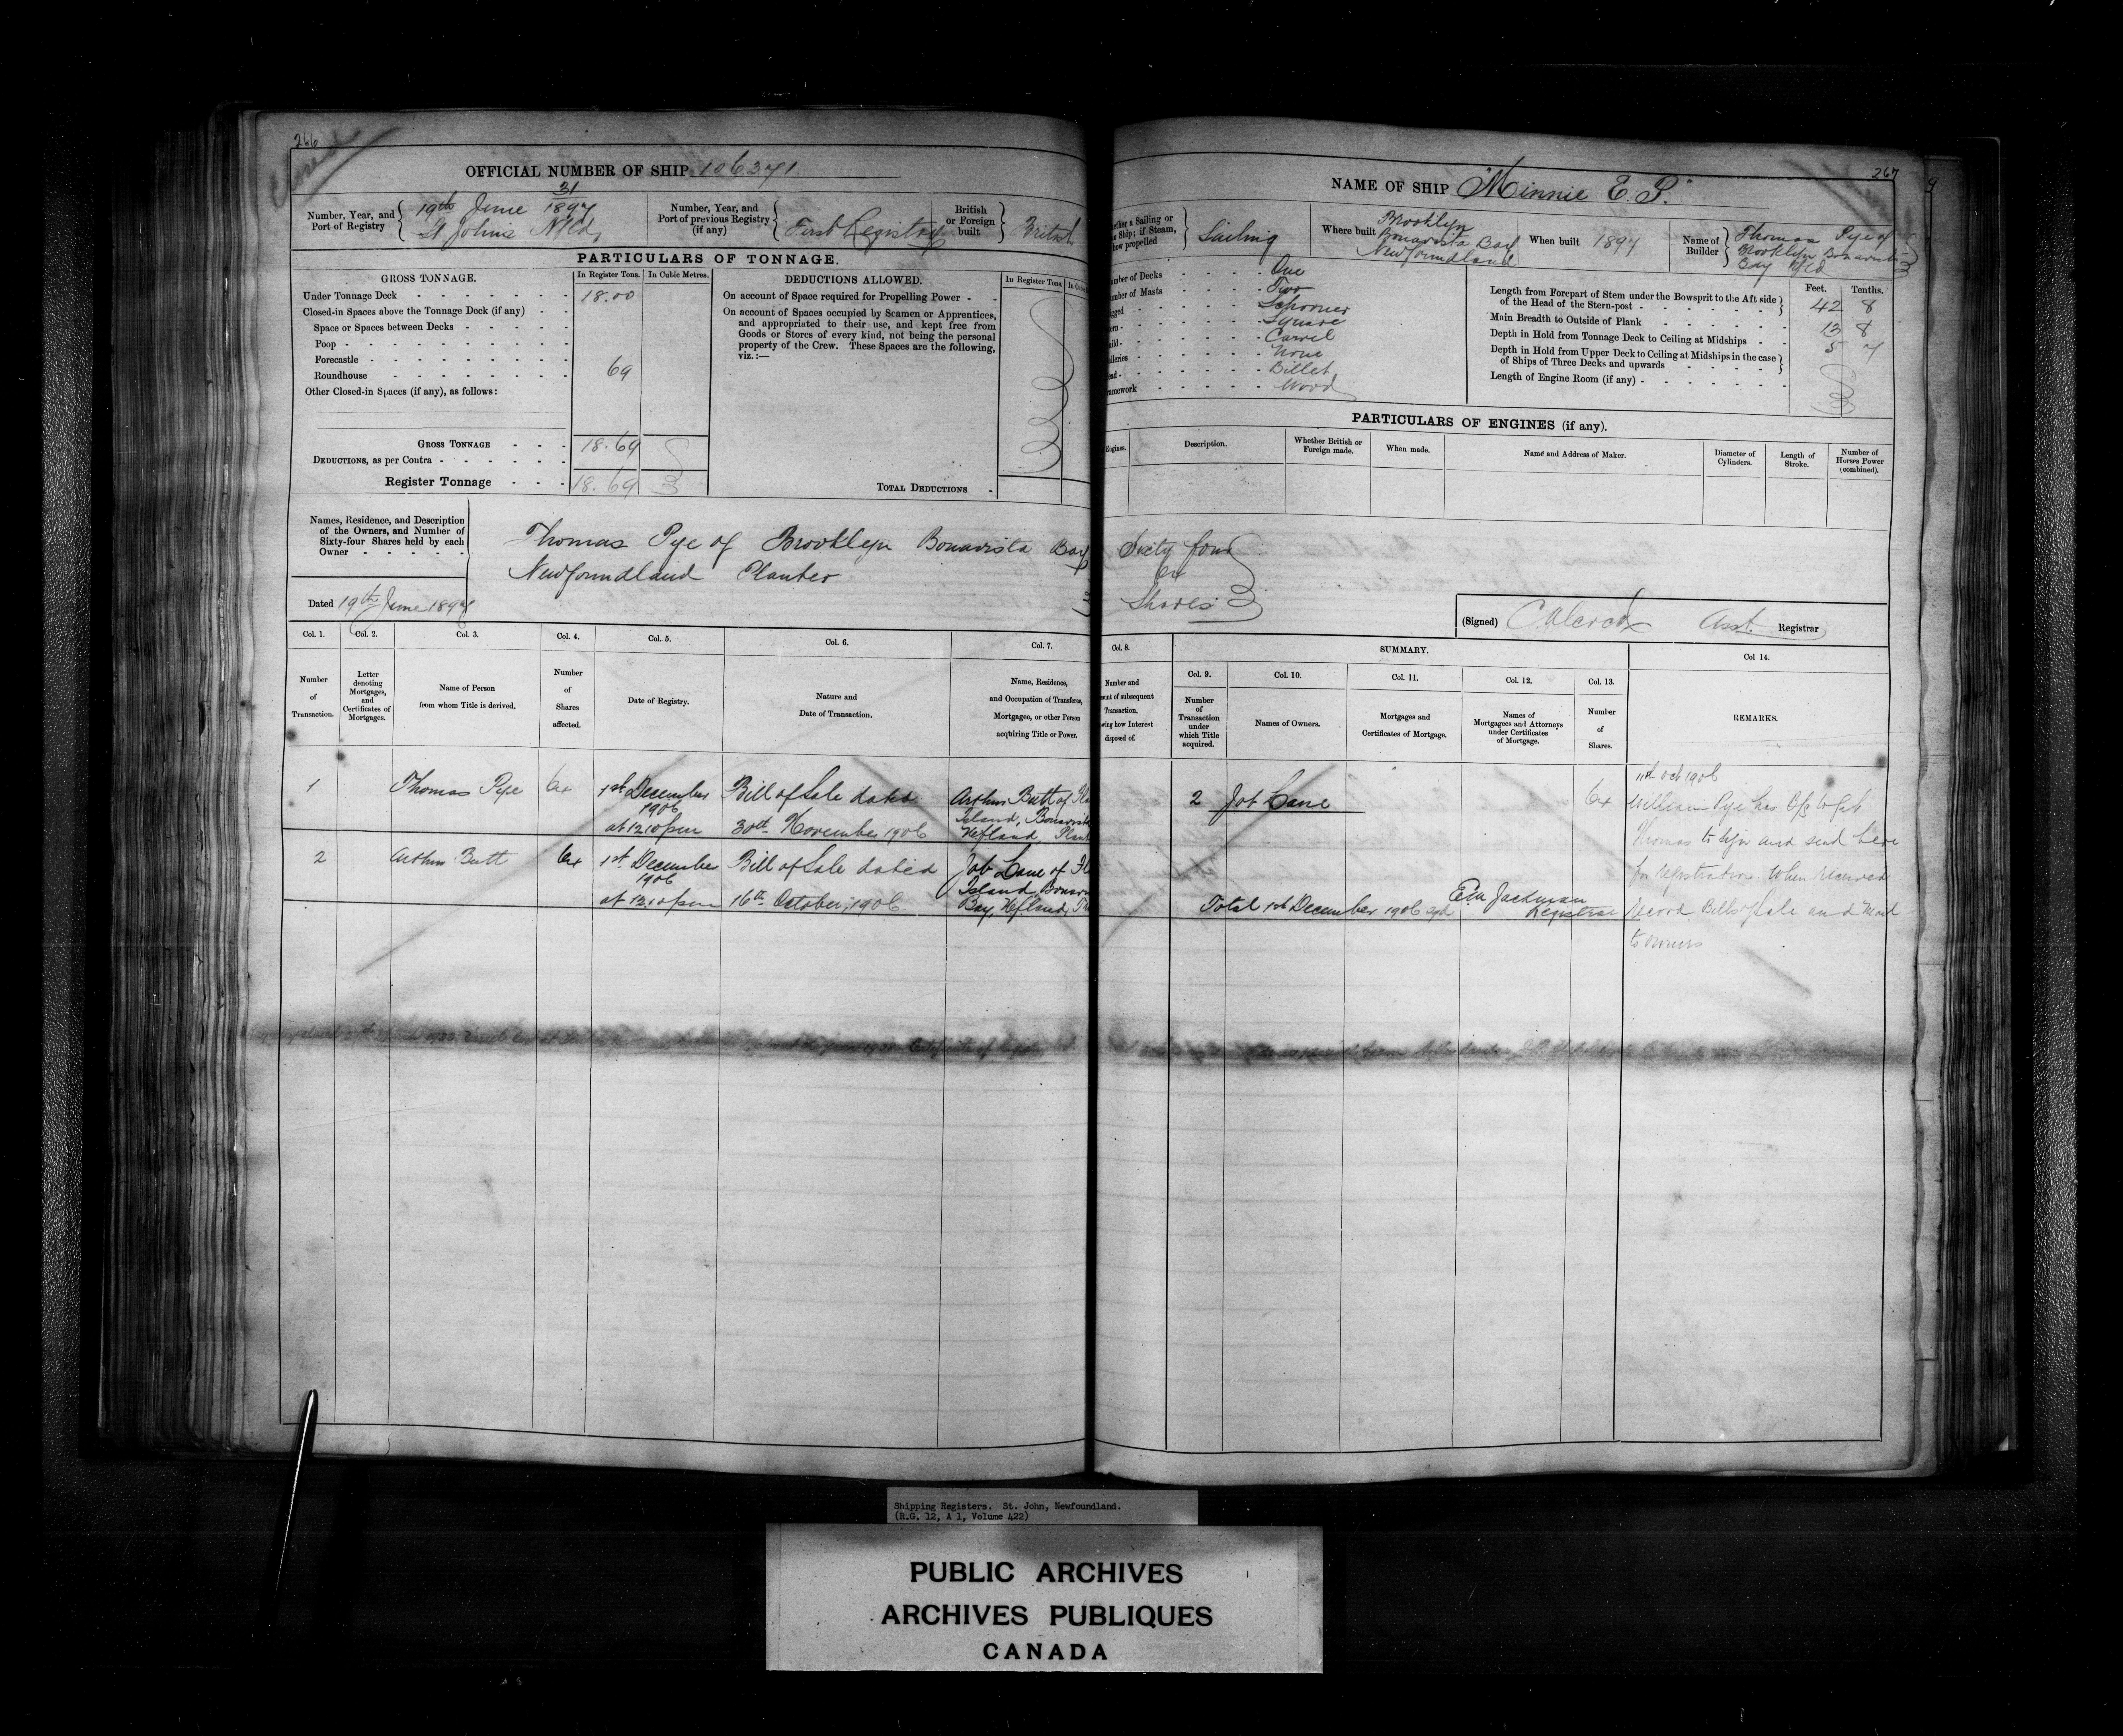 266
Closed
OFFICIAL NUMBER OF SHIP 106371
Number, Year, and Port of Registry
31
19th June 1897
St Johns Nfld,
Number, Year, and Port of previous Registry (if any)
First Registry
British or Foreign built
British
PARTICULARS OF TONNAGE.
GROSS TONNAGE.
In Register Tons.
In Cubic Metres.
Under Tonnage Deck 18.00
Closed-in Spaces above the Tonnage Deck (if any)
Space or Spaces between Decks
Poop
Forecastle
Roundhouse 69
Other Closed-in Spaces (if any), as follows:
GROSS TONNAGE 18.69
DEDUCTIONS, as per Contra
Register Tonnage 18.69
DEDUCTIONS ALLOWED.
In Register Tons.
On account of Space required for Propelling Power
On account of Spaces occupied by Seamen or Apprentices,
and appropriated to their use, and kept free from
Goods or Stores of every kind, not being the personal
property of the Crew. These Spaces are the following,
viz.:—
TOTAL DEDUCTIONS
Names, Residence, and Description
of the Owners, and Number of
Sixty-four Shares held by each
Owner
Thomas Pye of Brooklyn Bonavista Bay
Newfoundland Planter
Dated 19th June 1897
Col. 1.
Number of Transaction.
Col. 2.
Letter denoting Mortgages, and Certificates of Mortgages.
Col. 3.
Name of Person from whom Title is derived.
Col. 4.
Number of Shares affected.
Col. 5.
Date of Registry.
Col. 6.
Nature and Date of Transaction.
Col. 7.
Name, Residence,
and Occupation of Transferee,
Mortgagee, or other Person
acquiring Title or Power.
1 Thomas Pye 64 1st December 1906 at 12.10 pm
Bill of Sale dated 30th November 1906
Arthur Butt of
Island, Bonavista
Nfland,
2 Arthur Butt 64 1st December 1906 at 12.10 pm
Bill of Sale dated 16th October, 1906
Job Lane of
Island,
Bay, Nfland,
267
NAME OF SHIP "Minnie E. P."
Sailing or
Ship; if Steam,
how propelled
Sailing
Where built
Brooklyn
Bonavista Bay
Newfoundland
When built 1897
Name of Builder
Thomas Pye of
Brooklyn Bonavista
Bay Nfld
Number of Decks One
Number of Masts Two
Schooner
Square
Carvel
None
Billet
Wood
Feet. Tenths.
Length from Forepart of Stem under the Bowsprit to the Aft side
of the Head of the Stern-post 42 8
Main Breadth to Outside of Plank 13 8
Depth in Hold from Tonnage Deck to Ceiling at Midships 5 7
Depth in Hold from Upper Deck to Ceiling at Midships in the case
of Ships of Three Decks and upwards
Length of Engine Room (if any)
PARTICULARS OF ENGINES (if any).
Engines.
Description.
Whether British or Foreign made.
When made.
Name and Address of Maker.
Diameter of Cylinders.
Length of Stroke.
Number of Horses Power (combined).
Sixty four
64
Shares
(Signed) C Alcock Asst. Registrar
Col. 8.
Number and
of subsequent
Transaction,
how Interest
disposed of.
SUMMARY.
Col. 9.
Number of Transaction under which Title acquired.
Col. 10.
Names of Owners.
Col. 11.
Mortgages and Certificates of Mortgage.
Col. 12.
Names of Mortgagees and Attorneys under Certificates of Mortgage.
Col. 13.
Number of Shares.
Col 14.
REMARKS.
2 Job Lane 64
Total 1st December 1906
Jackman
Registrar
11th Oct 1906
William Pye has B/S to get
Thomas to sign and send here
for registration. When received
record, Bills of Sale and Mail
to owners
Shipping Registers. St. John, Newfoundland.
(R.G. 12, A 1, Volume 422)
PUBLIC ARCHIVES
ARCHIVES PUBLIQUES
CANADA